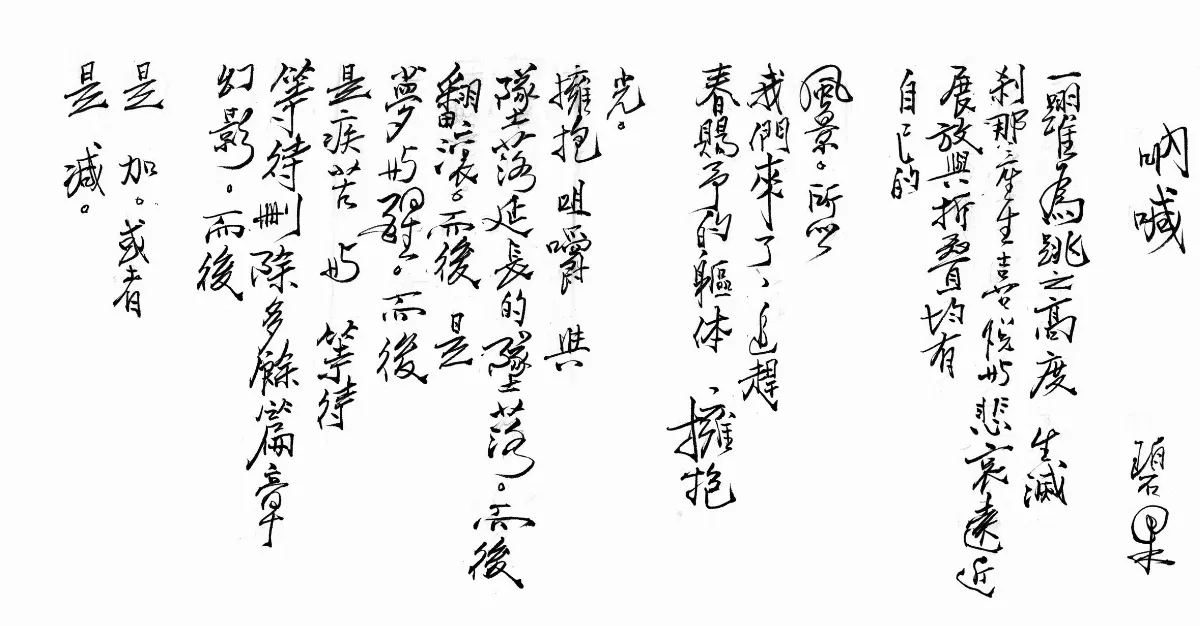 吶喊
碧果
一躍為跳之高度 生滅
剎那產生喜悅與悲哀遠近
展放與折疊均有
自己的
風景。所以
我們來了、追趕
春賜予的軀体、擁抱
光。
擁抱 咀嚼 與
墜落延長的墜落。而後
翻滾。而後 是
夢與醒。而後
是疾苦 與 等待
等待刪除多餘篇章
幻影。而後
是 加。或者
是 減。